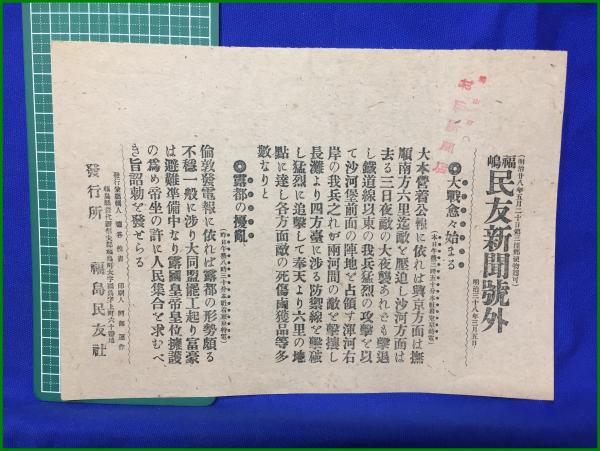 福嶋民友新聞號外
明治三十八年三月五日
◎大戰愈々始まる
大本營着公報に依れば興京方面は撫
順南方六里迄敵を壓迫し沙河方面は
去る三日夜敵の大夜襲あれども擊退
し鐵道線以東の我兵猛烈の攻擊を以
て沙河堡前面の陣地を占領す渾河右
岸の我兵之れが兩河間の敵を擊攘し
長灘より四方臺に涉る防禦線を擊破
し猛烈に追擊して奉天より六里の地
點に達し各方面敵の死傷鹵獲品等多
數なりと
◎露都の擾亂
倫敦發電報に依れば露都の形勢頗る
不穩一般に涉り大同盟罷工起り富豪
は避難準備中なり露國皇帝皇位擁護
の爲め帝坐の許に人民集合を求むべ
き旨詔勅を發せらる
發行所 福島民友社